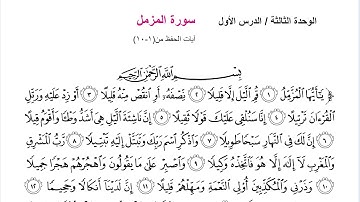 الوحدة الثالثة / الدرس الأول
سورة المزمل
آيات الحفظ من(١-١٠)
بِسْمِ اللَّهِ الرَّحْمَٰنِ الرَّحِيمِ
﴿ يَٰٓأَيُّهَا ٱلْمُزَّمِّلُ ١ قُمِ ٱلَّيْلَ إِلَّا قَلِيلًا ٢ نِّصْفَهُۥٓ أَوِ ٱنقُصْ مِنْهُ قَلِيلًا ٣ أَوْ زِدْ عَلَيْهِ وَرَتِّلِ
ٱلْقُرْءَانَ تَرْتِيلًا ٤ إِنَّا سَنُلْقِى عَلَيْكَ قَوْلًا ثَقِيلًا ٥ إِنَّ نَاشِئَةَ ٱلَّيْلِ هِىَ أَشَدُّ وَطْـًٔا وَأَقْوَمُ قِيلًا
٦ إِنَّ لَكَ فِى ٱلنَّهَارِ سَبْحًا طَوِيلًا ٧ وَٱذْكُرِ ٱسْمَ رَبِّكَ وَتَبَتَّلْ إِلَيْهِ تَبْتِيلًا ٨ رَّبُّ ٱلْمَشْرِقِ
وَٱلْمَغْرِبِ لَآ إِلَٰهَ إِلَّا هُوَ فَٱتَّخِذْهُ وَكِيلًا ٩ وَٱصْبِرْ عَلَىٰ مَا يَقُولُونَ وَٱهْجُرْهُمْ هَجْرًا جَمِيلًا
١٠ وَذَرْنِى وَٱلْمُكَذِّبِينَ أُو۟لِى ٱلنَّعْمَةِ وَمَهِّلْهُمْ قَلِيلًا ١١ إِنَّ لَدَيْنَآ أَنكَالًا وَجَحِيمًا ١٢